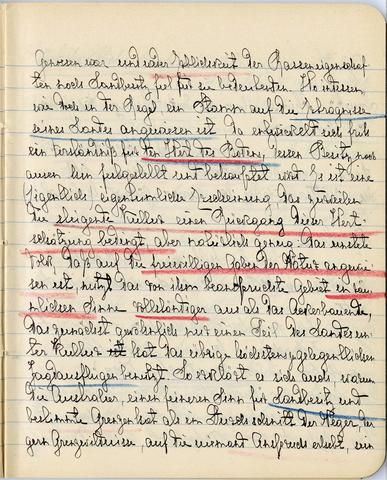 Genossen war und oder Üblichkeit der Rasseneigenschaf
ten noch Landbesitz für sie bedeuteten. Wo indessen,
wie doch in der Regel ein Stamm auf die Erzeugnisse
seines Landes angewiesen ist, da entwickelt sich früh
ein Verständnis für den Wert des Bodens, dessen Besitz nach
aussen hin festgestellt und behauptet wird. Es ist eine
eigentlich eigentümliche Erscheinung, dass zuweilen
die steigende Kultur einen Rückgang dieser Wert-
schätzung bedingt, aber natürlich genug. Das unstete
Volk, das auf die freiwilligen Gaben der Natur angewie
sen ist, nutzt das von ihm beanspruchte Gebiet in räum
lichem Sinne vollständiger aus als das ackerbauende,
das zunächst gewöhnlich nur einen Teil des Landes un
ter Kultur hat, das übrige höchstens gelegentlichen
Jagdausflügen benutzt. So erklärt es sich auch, warum
die Australier, einen feineren Sinn für Landbesitz und
bestimmte Grenzen hat als im Durchschnitt der Neger, der
gern Grenzwildnisse, auf die niemand Anspruch erhebt, sein